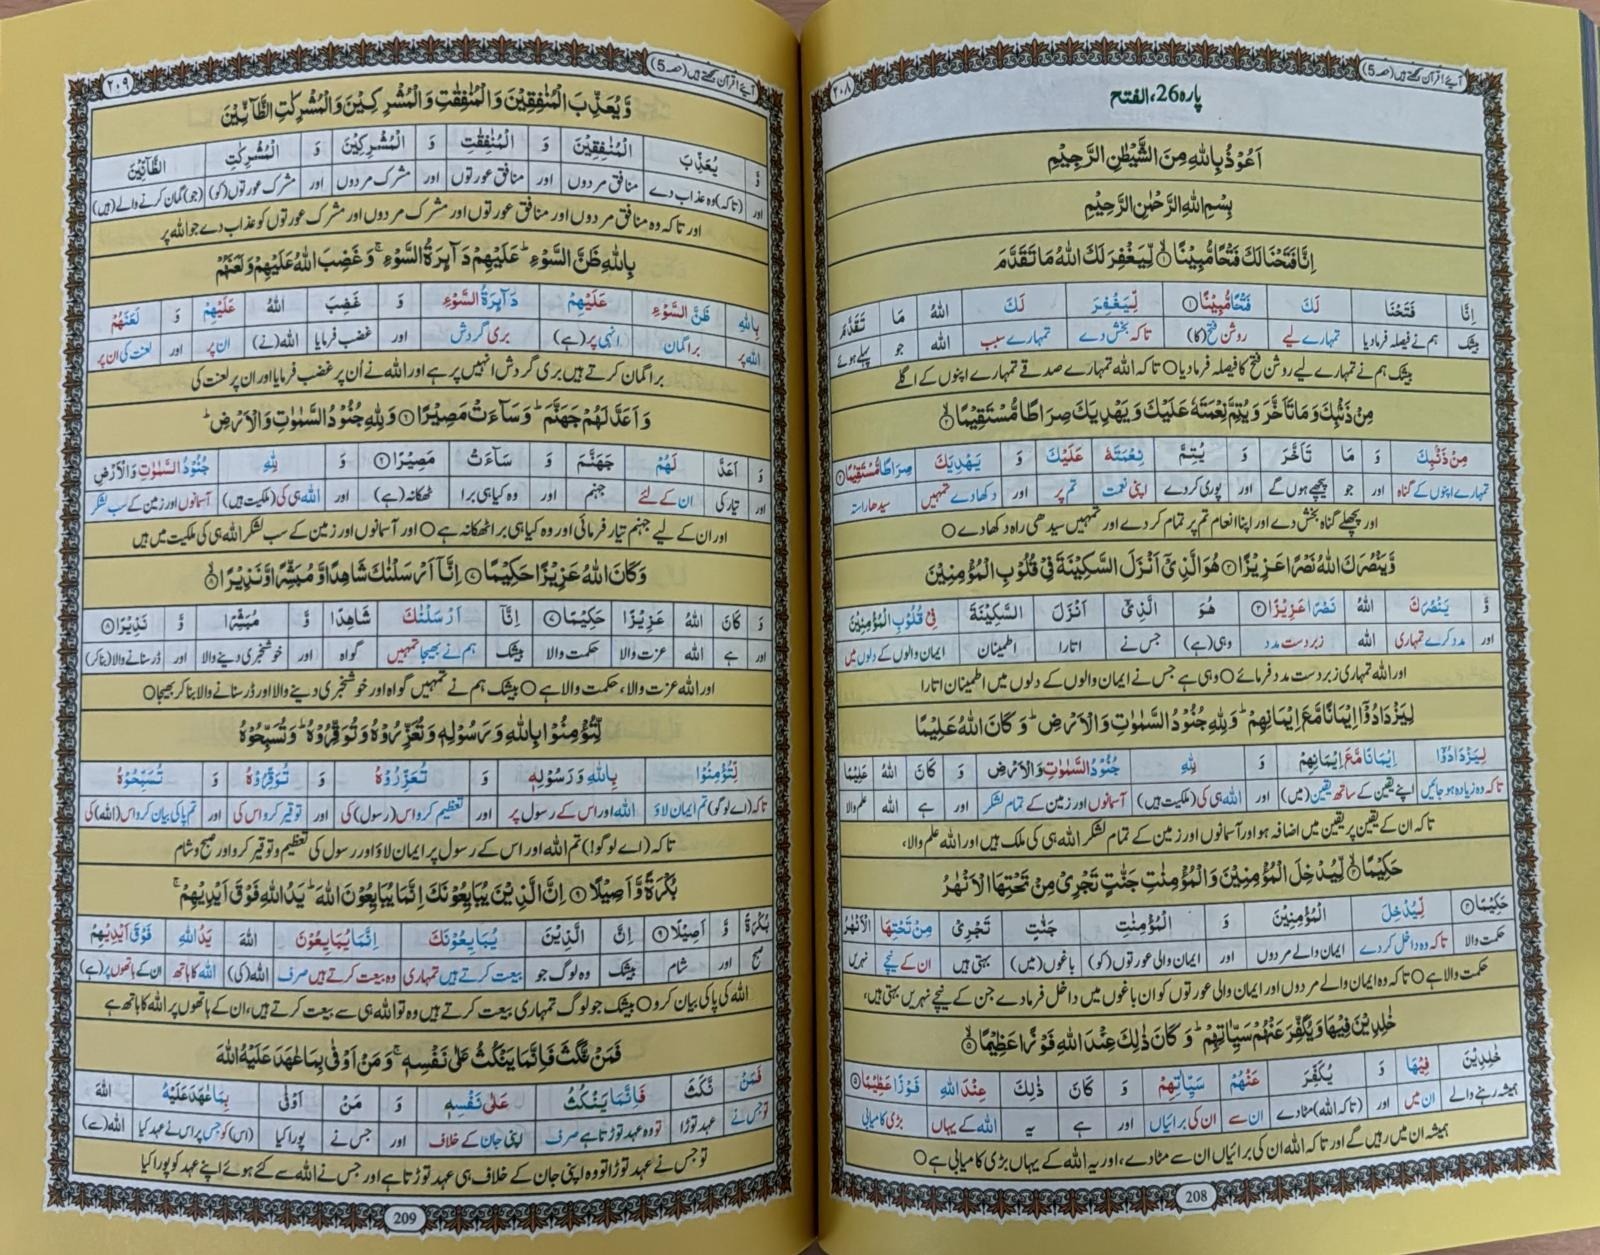 آیئے! قرآن سمجھتے ہیں (حصہ 5)
۲۰۸
پارہ 26، الفتح
اَعُوْذُ بِاللہِ مِنَ الشَّیْطٰنِ الرَّجِیْمِ
بِسْمِ اللہِ الرَّحْمٰنِ الرَّحِیْمِ
اِنَّا فَتَحْنَا لَكَ فَتْحًا مُّبِیْنًا ۱ لِّیَغْفِرَ لَكَ اللہُ مَا تَقَدَّمَ
اِنَّا فَتَحْنَا لَكَ فَتْحًا مُّبِیْنًا ۱ لِّیَغْفِرَ لَكَ اللہُ مَا تَقَدَّمَ
بیشک ہم نے فیصلہ فرمادیا تمہارے لیے روشن فتح (کا) تاکہ بخش دے تمہارے سبب اللہ جو پہلے ہوئے
بیشک ہم نے تمہارے لیے روشن فتح کا فیصلہ فرمادیا ○ تاکہ اللہ تمہارے صدقے تمہارے اپنوں کے اگلے
مِنْ ذَنْۢبِكَ وَ مَا تَاَخَّرَ وَ یُتِمَّ نِعْمَتَهٗ عَلَیْكَ وَ یَهْدِیَكَ صِرَاطًا مُّسْتَقِیْمًا ۲
مِنْ ذَنْۢبِكَ وَ مَا تَاَخَّرَ وَ یُتِمَّ نِعْمَتَهٗ عَلَیْكَ وَ یَهْدِیَكَ صِرَاطًا مُّسْتَقِیْمًا ۲
تمہارے اپنوں کے گناہ اور جو پیچھے ہوں گے اور پوری کردے اپنی نعمت تم پر اور دکھادے تمہیں سیدھا راستہ
اور پچھلے گناہ بخش دے اور اپنا انعام تم پر تمام کردے اور تمہیں سیدھی راہ دکھادے ○
وَّ یَنْصُرَكَ اللہُ نَصْرًا عَزِیْزًا ۳ هُوَ الَّذِیْۤ اَنْزَلَ السَّكِیْنَةَ فِیْ قُلُوْبِ الْمُؤْمِنِیْنَ
وَّ یَنْصُرَكَ اللہُ نَصْرًا عَزِیْزًا ۳ هُوَ الَّذِیْۤ اَنْزَلَ السَّكِیْنَةَ فِیْ قُلُوْبِ الْمُؤْمِنِیْنَ
اور مدد کرے تمہاری اللہ زبردست مدد وہی (ہے) جس نے اتارا اطمینان ایمان والوں کے دلوں میں
اور اللہ تمہاری زبردست مدد فرمائے ○ وہی ہے جس نے ایمان والوں کے دلوں میں اطمینان اتارا
لِیَزْدَادُوْۤا اِیْمَانًا مَّعَ اِیْمَانِهِمْ ؕ وَ لِلّٰهِ جُنُوْدُ السَّمٰوٰتِ وَ الْاَرْضِ ؕ وَ كَانَ اللہُ عَلِیْمًا
لِیَزْدَادُوْۤا اِیْمَانًا مَّعَ اِیْمَانِهِمْ وَ لِلّٰهِ جُنُوْدُ السَّمٰوٰتِ وَ الْاَرْضِ وَ كَانَ اللہُ عَلِیْمًا
تاکہ وہ زیادہ ہوجائیں اپنے یقین کے ساتھ یقین (میں) اور اللہ ہی کی (ملکیت ہیں) آسمانوں اور زمین کے تمام لشکر اور ہے اللہ علم والا
تاکہ ان کے یقین پر یقین میں اضافہ ہو اور آسمانوں اور زمین کے تمام لشکر اللہ ہی کی ملک ہیں اور اللہ علم والا،
حَكِیْمًا ۴ لِّیُدْخِلَ الْمُؤْمِنِیْنَ وَ الْمُؤْمِنٰتِ جَنّٰتٍ تَجْرِیْ مِنْ تَحْتِهَا الْاَنْهٰرُ
حَكِیْمًا ۴ لِّیُدْخِلَ الْمُؤْمِنِیْنَ وَ الْمُؤْمِنٰتِ جَنّٰتٍ تَجْرِیْ مِنْ تَحْتِهَا الْاَنْهٰرُ
حکمت والا تاکہ وہ داخل کردے ایمان والے مردوں اور ایمان والی عورتوں (کو) باغوں (میں) بہتی ہیں ان کے نیچے نہریں
حکمت والا ہے ○ تاکہ وہ ایمان والے مردوں اور ایمان والی عورتوں کو ان باغوں میں داخل فرمادے جن کے نیچے نہریں بہتی ہیں،
خٰلِدِیْنَ فِیْهَا وَ یُكَفِّرَ عَنْهُمْ سَیِّاٰتِهِمْ ؕ وَ كَانَ ذٰلِكَ عِنْدَ اللہِ فَوْزًا عَظِیْمًا ۵
خٰلِدِیْنَ فِیْهَا وَ یُكَفِّرَ عَنْهُمْ سَیِّاٰتِهِمْ وَ كَانَ ذٰلِكَ عِنْدَ اللہِ فَوْزًا عَظِیْمًا ۵
ہمیشہ رہنے والے ان میں اور (تاکہ اللہ) مٹادے ان سے ان کی برائیاں اور ہے یہ اللہ کے یہاں بڑی کامیابی
ہمیشہ ان میں رہیں گے اور تاکہ اللہ ان کی برائیاں ان سے مٹادے، اور یہ اللہ کے یہاں بڑی کامیابی ہے ○
208
آیئے! قرآن سمجھتے ہیں (حصہ 5)
۲۰۹
وَّ یُعَذِّبَ الْمُنٰفِقِیْنَ وَ الْمُنٰفِقٰتِ وَ الْمُشْرِكِیْنَ وَ الْمُشْرِكٰتِ الظَّآنِّیْنَ
وَّ یُعَذِّبَ الْمُنٰفِقِیْنَ وَ الْمُنٰفِقٰتِ وَ الْمُشْرِكِیْنَ وَ الْمُشْرِكٰتِ الظَّآنِّیْنَ
اور (تاکہ) وہ عذاب دے منافق مردوں اور منافق عورتوں اور مشرک مردوں اور مشرک عورتوں (کو) (جو) گمان کرنے والے (ہیں)
اور تاکہ وہ منافق مردوں اور منافق عورتوں اور مشرک مردوں اور مشرک عورتوں کو عذاب دے جو اللہ پر
بِاللہِ ظَنَّ السَّوْءِ ؕ عَلَیْهِمْ دَآىِٕرَةُ السَّوْءِ ۚ وَ غَضِبَ اللہُ عَلَیْهِمْ وَ لَعَنَهُمْ
بِاللہِ ظَنَّ السَّوْءِ عَلَیْهِمْ دَآىِٕرَةُ السَّوْءِ وَ غَضِبَ اللہُ عَلَیْهِمْ وَ لَعَنَهُمْ
اللہ پر برا گمان انہی پر (ہے) بری گردش اور غضب فرمایا اللہ (نے) ان پر اور لعنت کی ان پر
برا گمان کرتے ہیں بری گردش انہیں پر ہے اور اللہ نے اُن پر غضب فرمایا اور ان پر لعنت کی
وَ اَعَدَّ لَهُمْ جَهَنَّمَ ؕ وَ سَآءَتْ مَصِیْرًا ۶ وَ لِلّٰهِ جُنُوْدُ السَّمٰوٰتِ وَ الْاَرْضِ ؕ
وَ اَعَدَّ لَهُمْ جَهَنَّمَ وَ سَآءَتْ مَصِیْرًا ۶ وَ لِلّٰهِ جُنُوْدُ السَّمٰوٰتِ وَ الْاَرْضِ
اور تیار کی ان کے لئے جہنم اور وہ کیا ہی برا ٹھکانہ (ہے) اور اللہ ہی کی (ملکیت ہیں) آسمانوں اور زمین کے سب لشکر
اور ان کے لیے جہنم تیار فرمائی اور وہ کیا ہی برا ٹھکانہ ہے ○ اور آسمانوں اور زمین کے سب لشکر اللہ ہی کی ملکیت میں ہیں
وَ كَانَ اللہُ عَزِیْزًا حَكِیْمًا ۷ اِنَّاۤ اَرْسَلْنٰكَ شَاهِدًا وَّ مُبَشِّرًا وَّ نَذِیْرًا ۸
وَ كَانَ اللہُ عَزِیْزًا حَكِیْمًا ۷ اِنَّاۤ اَرْسَلْنٰكَ شَاهِدًا وَّ مُبَشِّرًا وَّ نَذِیْرًا ۸
اور ہے اللہ عزت والا حکمت والا بیشک ہم نے بھیجا تمہیں گواہ اور خوشخبری دینے والا اور ڈر سنانے والا (بنا کر)
اور اللہ عزت والا، حکمت والا ہے ○ بیشک ہم نے تمہیں گواہ اور خوشخبری دینے والا اور ڈر سنانے والا بنا کر بھیجا ○
لِّتُؤْمِنُوْا بِاللہِ وَ رَسُوْلِهٖ وَ تُعَزِّرُوْهُ وَ تُوَقِّرُوْهُ ؕ وَ تُسَبِّحُوْهُ
لِّتُؤْمِنُوْا بِاللہِ وَ رَسُوْلِهٖ وَ تُعَزِّرُوْهُ وَ تُوَقِّرُوْهُ وَ تُسَبِّحُوْهُ
تاکہ (اے لوگو) تم ایمان لاؤ اللہ اور اس کے رسول پر اور تعظیم کرو اس (رسول) کی اور توقیر کرو اس کی اور تم پاکی بیان کرو اس (اللہ) کی
تاکہ (اے لوگو!) تم اللہ اور اس کے رسول پر ایمان لاؤ اور رسول کی تعظیم و توقیر کرو اور صبح و شام
بُكْرَةً وَّ اَصِیْلًا ۹ اِنَّ الَّذِیْنَ یُبَایِعُوْنَكَ اِنَّمَا یُبَایِعُوْنَ اللہَ ؕ یَدُ اللہِ فَوْقَ اَیْدِیْهِمْ ۚ
بُكْرَةً وَّ اَصِیْلًا ۹ اِنَّ الَّذِیْنَ یُبَایِعُوْنَكَ اِنَّمَا یُبَایِعُوْنَ اللہَ یَدُ اللہِ فَوْقَ اَیْدِیْهِمْ
صبح اور شام بیشک وہ لوگ جو بیعت کرتے ہیں تمہاری وہ بیعت کرتے ہیں صرف اللہ (کی) اللہ کا ہاتھ ان کے ہاتھوں پر (ہے)
اللہ کی پاکی بیان کرو ○ بیشک جو لوگ تمہاری بیعت کرتے ہیں وہ تو اللہ ہی سے بیعت کرتے ہیں، ان کے ہاتھوں پر اللہ کا ہاتھ ہے
فَمَنْ نَّكَثَ فَاِنَّمَا یَنْكُثُ عَلٰى نَفْسِهٖ ۚ وَ مَنْ اَوْفٰى بِمَا عٰهَدَ عَلَیْهُ اللہَ
فَمَنْ نَّكَثَ فَاِنَّمَا یَنْكُثُ عَلٰى نَفْسِهٖ وَ مَنْ اَوْفٰى بِمَا عٰهَدَ عَلَیْهُ اللہَ
تو جس نے عہد توڑا تو وہ عہد توڑتا ہے صرف اپنی جان کے خلاف اور جس نے پورا کیا (اس) کو جس پر اس نے عہد کیا اللہ (سے)
تو جس نے عہد توڑا تو وہ اپنی جان کے خلاف ہی عہد توڑتا ہے اور جس نے اللہ سے کئے ہوئے اپنے عہد کو پورا کیا
209